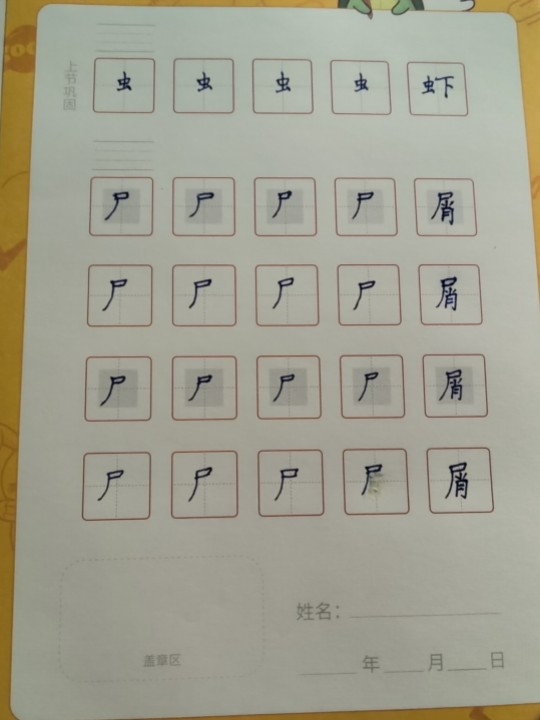 上节巩固
虫 虫 虫 虫 虾
尸 尸 尸 尸 屑
尸 尸 尸 尸 屑
尸 尸 尸 尸 屑
尸 尸 尸 尸 屑
姓名：
盖章区
年 月 日